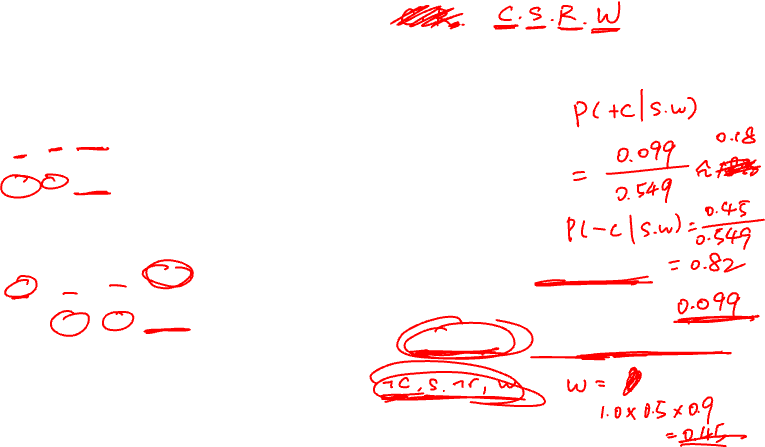 C.S.R.W
P(+C|S.W)
= 0.099 / 0.549 ≈ 0.18
P(-C|S.W) = 0.45 / 0.549
= 0.82
0.099
¬C, S, ¬r, W
W =
1.0 x 0.5 x 0.9
= 0.45